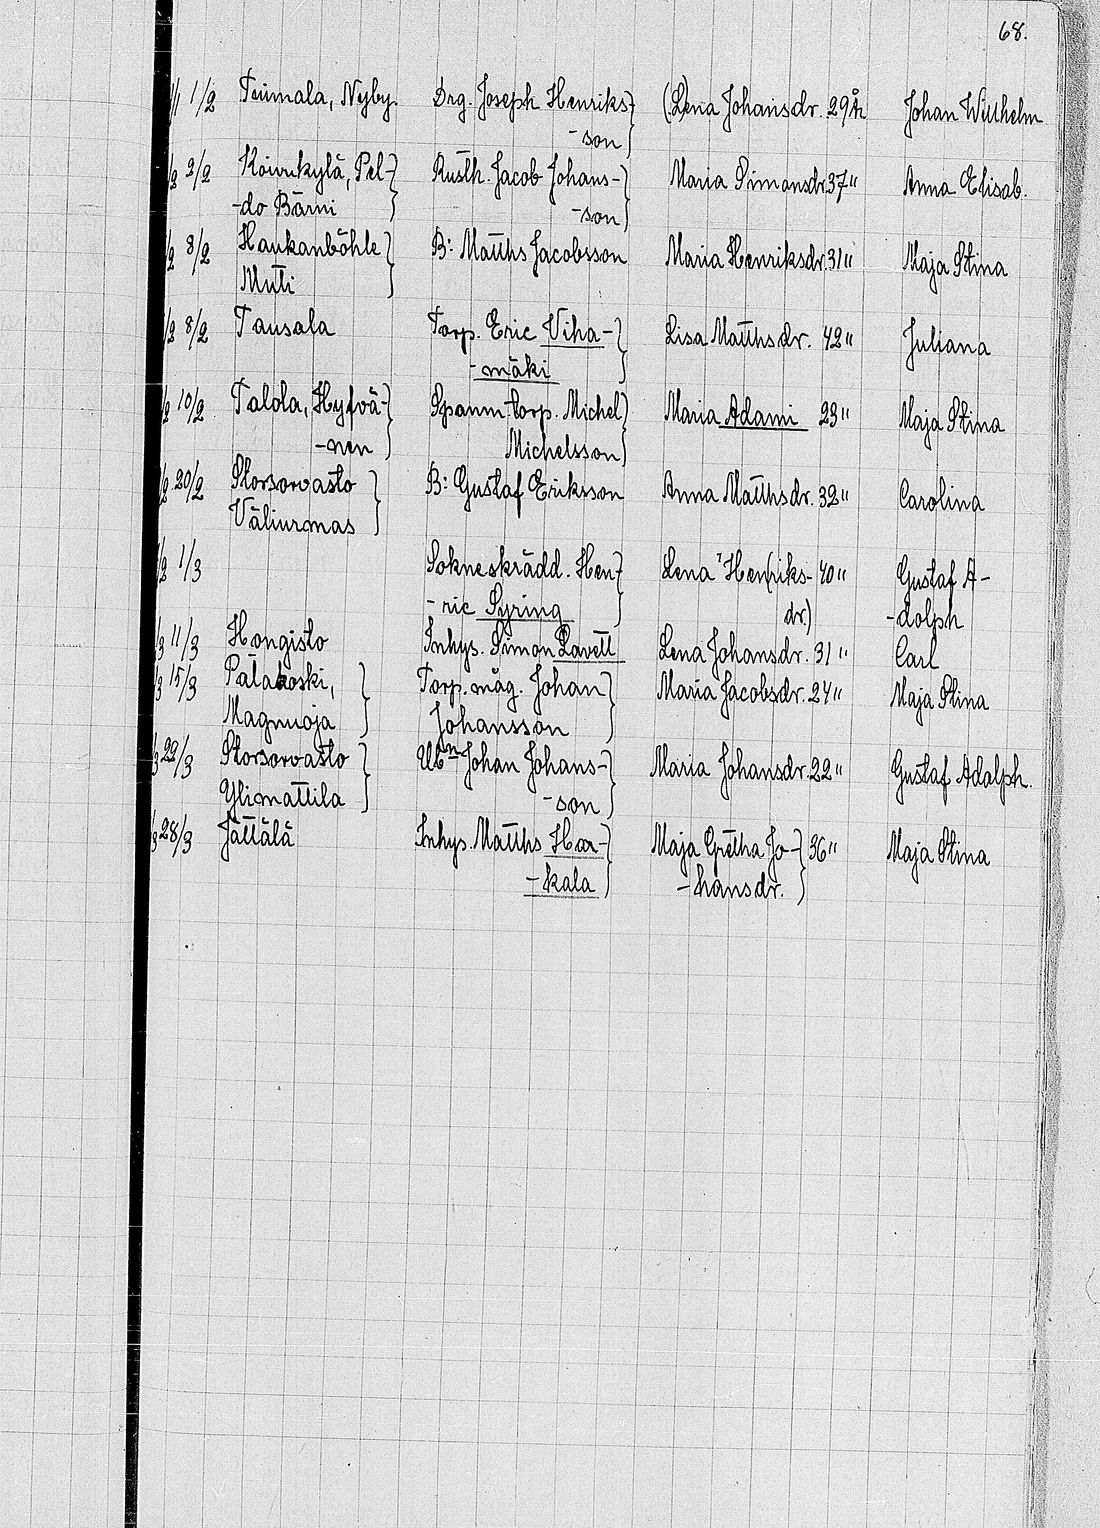 68.
1/1 1/2 Teimala, Nyby. Drg. Joseph Henriks- (Lena) Johansdr. 29 År Johan Willhelm
-son
/2 2/2 Koivukylä, Pel- Rusth. Jacob Johans- Maria Simonsdr. 37 " Anna Elisab.
-do Bärni -son
/2 8/2 Haukanböhle B: Matths Jacobsson Maria Henriksdr. 31 " Maja Stina
Muti
/2 8/2 Tausala Torp. Eric Viha- Lisa Matthsdr. 42 " Juliana
-mäki
/2 10/2 Talola, Hyfvä- Spanm torp. Michel Maria Adami 23 " Maja Stina
-nen Michelsson
/2 20/2 Storsorvasto B: Gustaf Eriksson Anna Matthsdr. 32 " Carolina
Väliurmas
/2 1/3 Sokneskrädd. Hen- Lena Hen(riks- 40 " Gustaf A-
-ric Syring dr.) -dolph
/3 11/3 Hongisto Inhys. Simon Lavett Lena Johansdr. 31 " Carl
/3 15/3 Palakoski, Torp. måg. Johan Maria Jacobsdr. 24 " Maja Stina
Magnuoja Johansson
/3 22/3 Storsorvasto Ubn Johan Johans- Maria Johansdr. 22 " Gustaf Adolph.
Ylimattila -son
/3 28/3 Jättälä Inhys. Matths Har- Maja Gretha Jo- 36 " Maja Stina
-kala -hansdr.